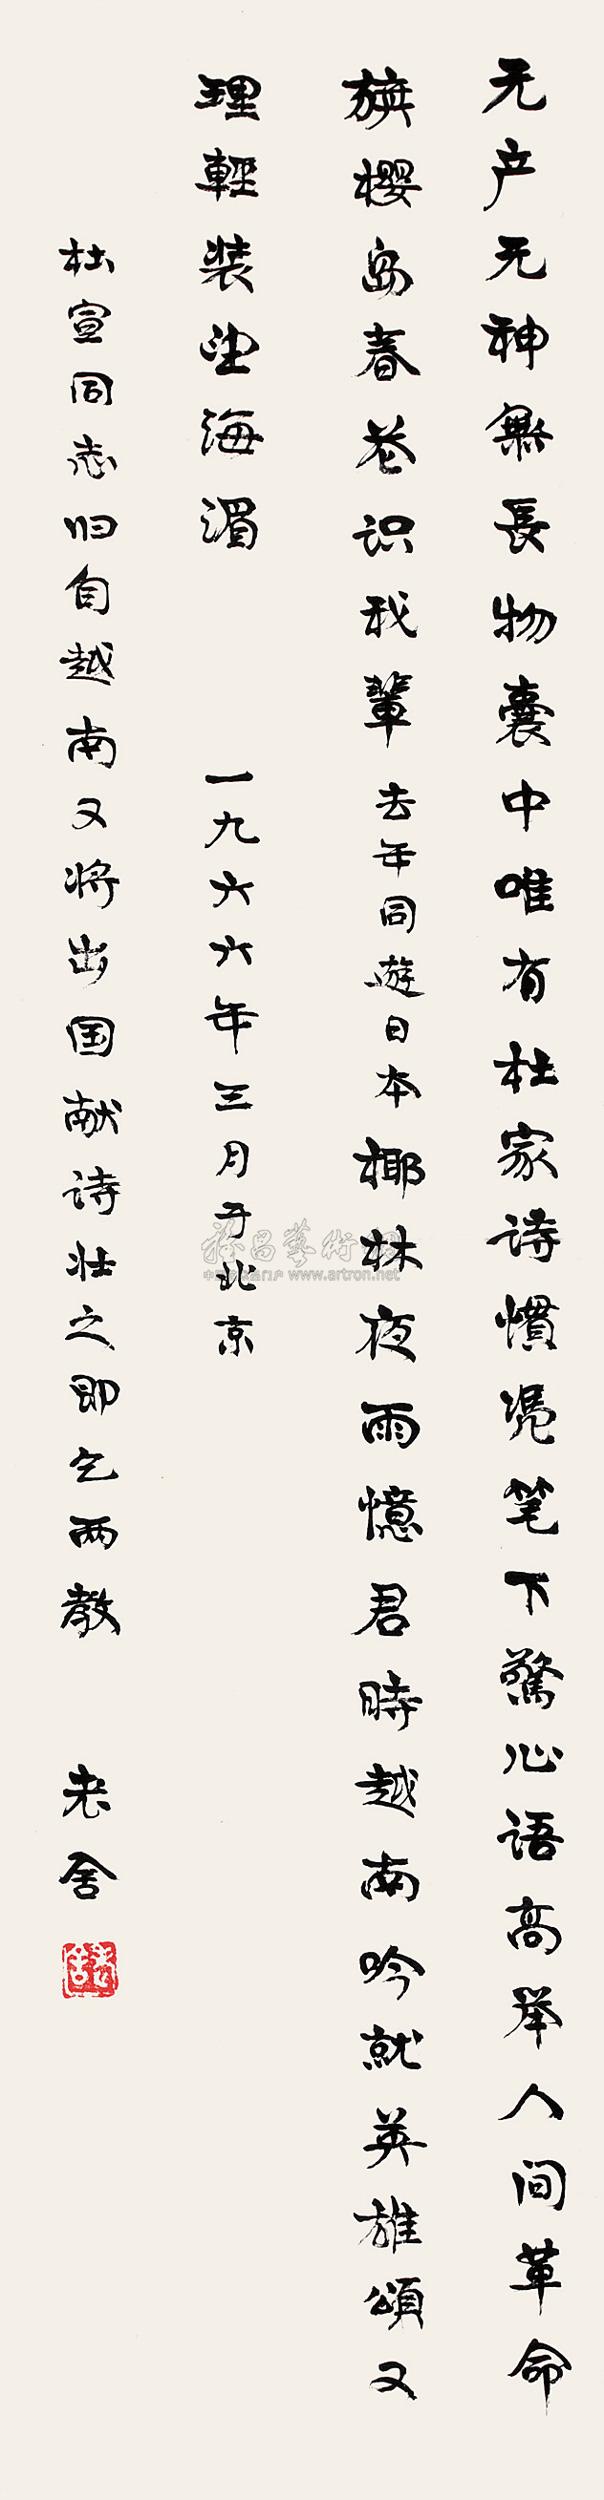 无产无神無長物囊中唯有杜家诗慣凭笔下驚心语高举人间革命
旗樱岛春花识我輩去年同遊日本椰林夜雨憶君時越南吟就英雄頌又
理輕装望海湄 一九六六年三月于北京
杜宣同志归自越南又将出国献诗壮之即乞两教 老舍
www.artron.net